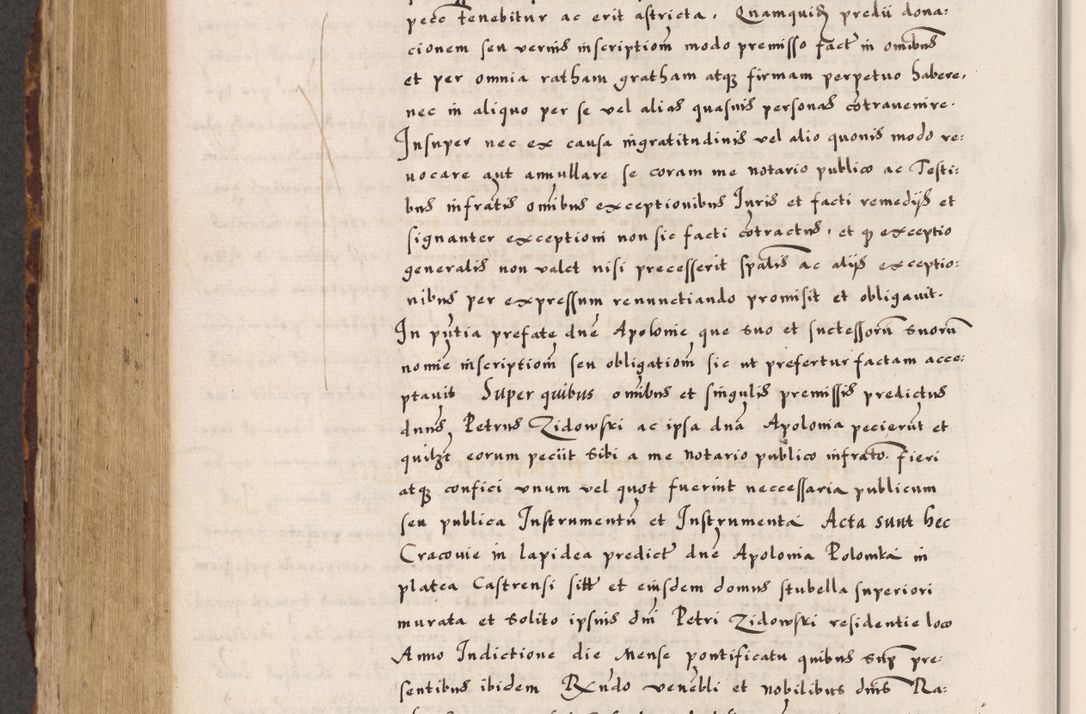 pecc tenebitur ac erit astricta. Quamquidē predii dona:
cionem seu verius inscriptioīn modo premisso fact in oībus
et per omnia ratham gratham atqȝ firmam perpetuo habere,
nec in aliquo per se vel alias quasuis personas cōtrauenire.
Insuper nec ex causa ingratitudinis vel alio quouis modo re:
uocare aut annullare se coram me notario publico ac Testi:
bus infratis oībus exceptionibus Juris et facti remedijs et
signanter exceptioni non sic facti cōtractus, et ꝙ exceptio
generalis non valet nisi precesserit spālis ac alijs exceptio:
nibus per expressum renunctiando promisit et obligauit.
In pn̄tia prefate dn̄e Apolonie que suo et suctessorum suorum
nomīe inscriptioīn seu obligatioīn sic ut prefertur factam acce:
ptauit Super quibus oībus et singulis premissis predictus
dn̄us Petrus Zidowski ac ipsa dn̄a Apolonia pecierūt et
quilȝt eorum peciit sibi a me notario publico infrato. Fieri
atqȝ confici vnum vel quot fuerint neccessaria publicum
seu publica Instrumentū et Instrumenta Acta sunt hec
Cracouie in lapidea predict dn̄e Apolonia Polomka in
platea Castrensi sitt et eiusdem domus stubella superiori
murata et solito ipsius dn̄i Petri Zidowski residentie loco
Anno Indictione die Mense pontificatu quibus sup̄ pre:
sentibus ibidem Rx̄ndo venēbli et nobilibus dn̄is Ra: